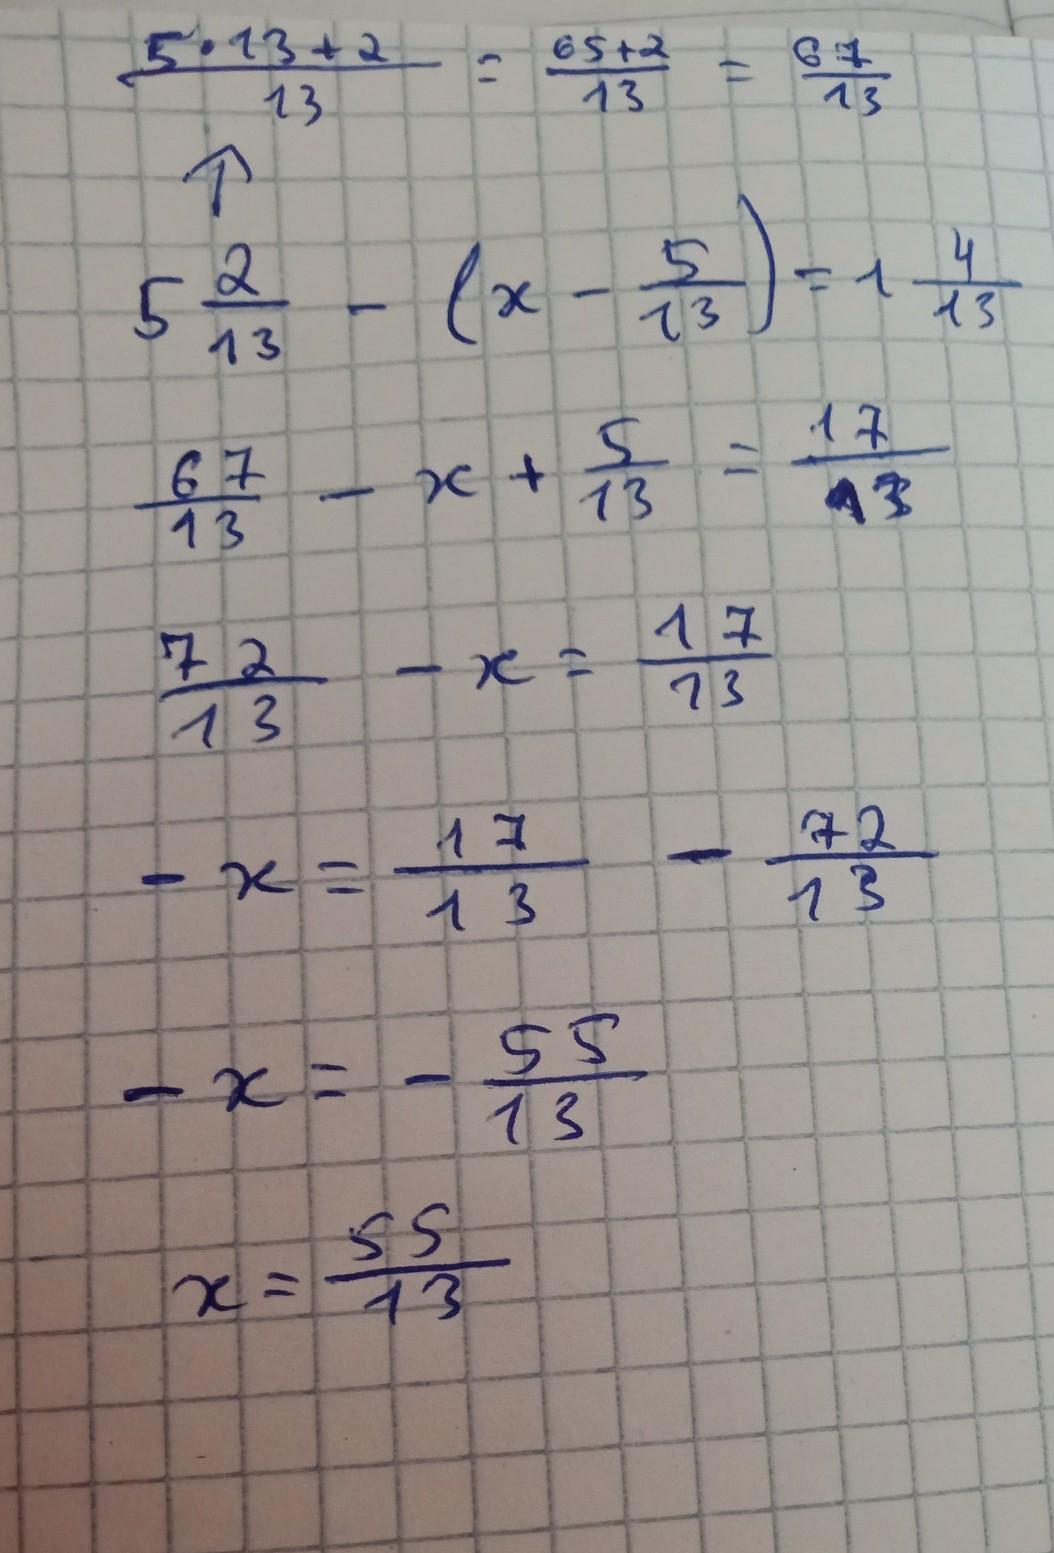 (5·13+2)/13 = (65+2)/13 = 67/13
↑
5 2/13 - (x - 5/13) = 1 4/13
67/13 - x + 5/13 = 17/13
72/13 - x = 17/13
- x = 17/13 - 72/13
- x = - 55/13
x = 55/13